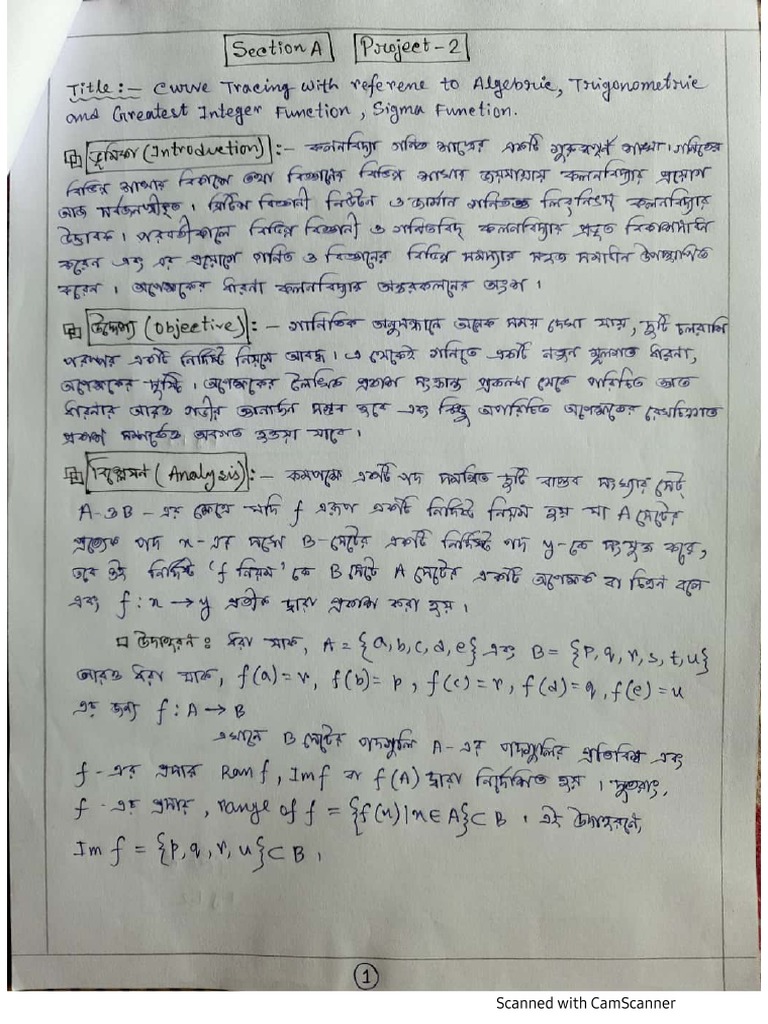 Section A Project-2
Title:- Curve Tracing with referene to Algebric, Trigonometric
and Greatest Integer Function, Sigma Function.
ভূমিকা (Introduction) :- কলনবিদ্যা গণিত শাস্ত্রের একটি গুরুত্বপূর্ণ শাখা। গণিতের
বিভিন্ন শাখার বিকাশে তথা বিজ্ঞানের বিভিন্ন শাখার জয়যাত্রায় কলনবিদ্যার প্রয়োগ
আজ সর্বজনস্বীকৃত। ব্রিটিশ বিজ্ঞানী নিউটন ও জার্মান গণিতজ্ঞ লিবনিৎজ কলনবিদ্যার
উদ্ভাবক। পরবর্তীকালে বিভিন্ন বিজ্ঞানী ও গণিতবিদ কলনবিদ্যার প্রভূত বিকাশসাধন
করেন এবং এর প্রয়োগে গণিত ও বিজ্ঞানের বিভিন্ন সমস্যার সহজ সমাধান উপস্থাপিত
করেন। অপেক্ষকের ধারনা কলনবিদ্যার অন্তরকলনের অংশ।
উদ্দেশ্য (Objective) :- গাণিতিক অনুসন্ধানে অনেক সময় দেখা যায়, দুটি চলরাশি
পরস্পর একটি নির্দিষ্ট নিয়মে আবদ্ধ। এ থেকেই গণিতে একটি নতুন মূলগত ধারনা,
অপেক্ষকের সৃষ্টি। অপেক্ষকের লৈখিক প্রকাশ সংক্রান্ত প্রকল্প থেকে পরিচিত
ধারনার আরও গভীর জ্ঞানার্জন সম্ভব হবে এবং কিছু অপরিচিত অপেক্ষকের রেখচিত্রগত
প্রকাশ সম্পর্কেও অবগত হওয়া যাবে।
বিশ্লেষণ (Analysis) :- কমপক্ষে একটি পদ সমন্বিত দুটি বাস্তব সংখ্যার সেট্
A ও B - এর ক্ষেত্রে যদি f এরূপ একটি নির্দিষ্ট নিয়ম হয় যা A সেটের
প্রত্যেক পদ x-এর সঙ্গে B-সেটের একটি নির্দিষ্ট পদ y-কে সংযুক্ত করে,
তবে ওই নির্দিষ্ট 'f নিয়ম' কে B সেটে A সেটের একটি অপেক্ষক বা চিত্রন বলে
এবং f : x → y প্রতীক দ্বারা প্রকাশ করা হয়।
উদাহরণ : ধরা যাক, A = {a, b, c, d, e} এবং B = {p, q, r, s, t, u}
আরও ধরা যাক, f(a) = r, f(b) = p, f(c) = r, f(d) = q, f(e) = u
এর জন্য f : A → B
এখানে B সেটের পদগুলি A-এর পদগুলির প্রতিবিম্ব এবং
f-এর প্রসার Ran f, Im f বা f(A) দ্বারা নির্দেশিত হয়। সুতরাং,
f-এর প্রসার, range of f = {f(x)|x ∈ A} ⊂ B। এই উদাহরণে,
Im f = {p, q, r, u} ⊂ B।
1
Scanned with CamScanner